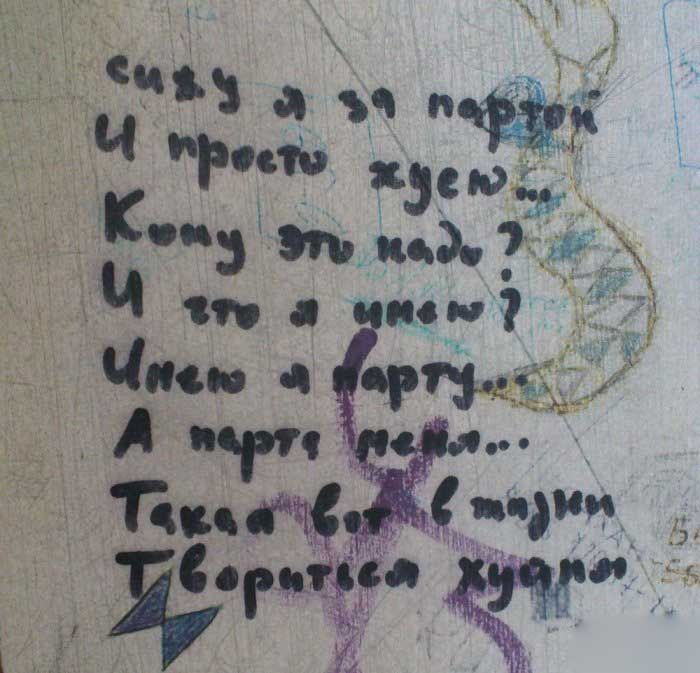 сижу я за партой
И просто хуею...
Кому это надо?
И что я имею?
Имею я парту...
А парта меня...
Такая вот в жизни
Твориться хуйня